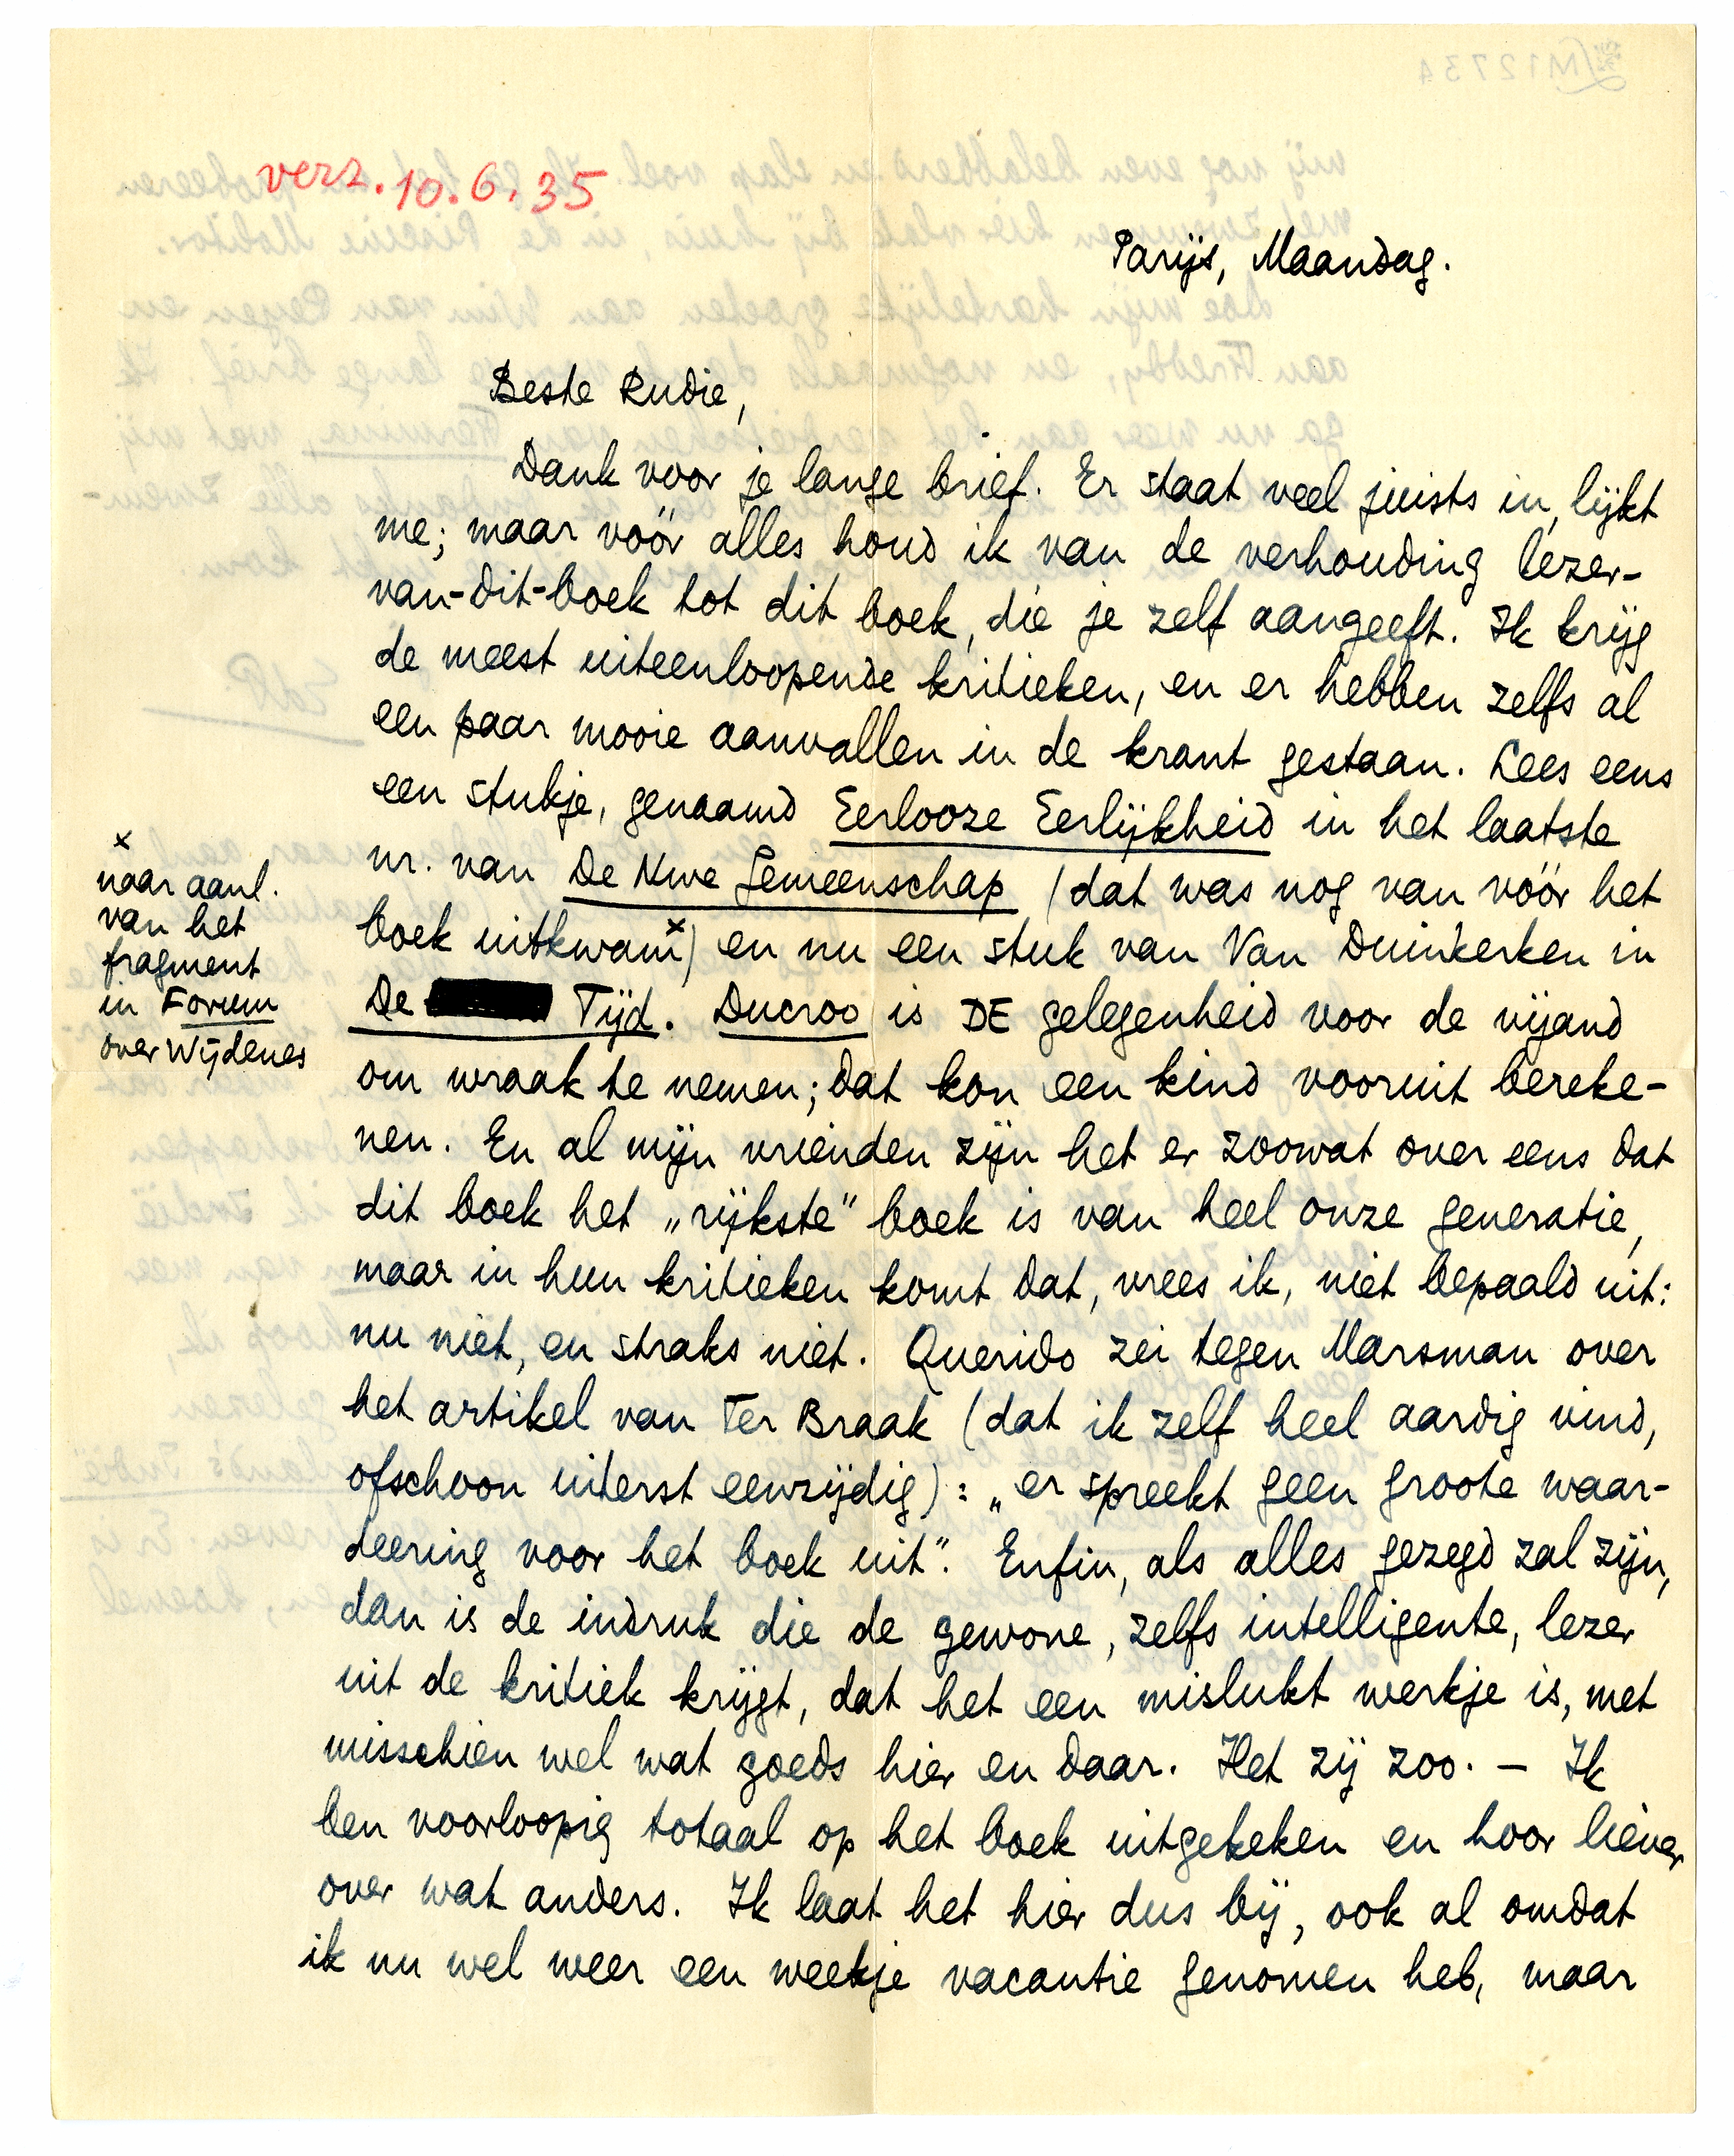 verz. 10.6.35
Parijs, Maandag.
Beste Rudie,
Dank voor je lange brief. Er staat veel juists in, lijkt
me; maar vóór alles houd ik van de verhouding lezer-
van-dit-boek tot dit boek, die je zelf aangeeft. Ik krijg
de meest uiteenloopende kritieken, en er hebben zelfs al
een paar mooie aanvallen in de krant gestaan. Lees eens
een stukje, genaamd Eerlooze Eerlijkheid in het laatste
nr. van De Nwe Gemeenschap (dat was nog van vóór het
boek uitkwam x) en nu een stuk van Van Duinkerken in
De Tijd. Ducroo is DE gelegenheid voor de vijand
om wraak te nemen; dat kon een kind vooruit bereke-
nen. En al mijn vrienden zijn het er zoowat over eens dat
dit boek het „rijkste" boek is van heel onze generatie,
maar in hun kritieken komt dat, vrees ik, niet bepaald uit:
nu niet, en straks niet. Querido zei tegen Marsman over
het artikel van Ter Braak (dat ik zelf heel aardig vind,
ofschoon uiterst eenzijdig): „er spreekt geen groote waar-
deering voor het boek uit". Enfin, als alles gezegd zal zijn,
dan is de indruk die de gewone, zelfs intelligente, lezer
uit de kritiek krijgt, dat het een mislukt werkje is, met
misschien wel wat goeds hier en daar. Het zij zoo. — Ik
ben voorloopig totaal op het boek uitgekeken en hoor liever
over wat anders. Ik laat het hier dus bij, ook al omdat
ik nu wel weer een weekje vacantie genomen heb, maar
x
naar aanl.
van het
fragment
in Forum
over Wijdenes